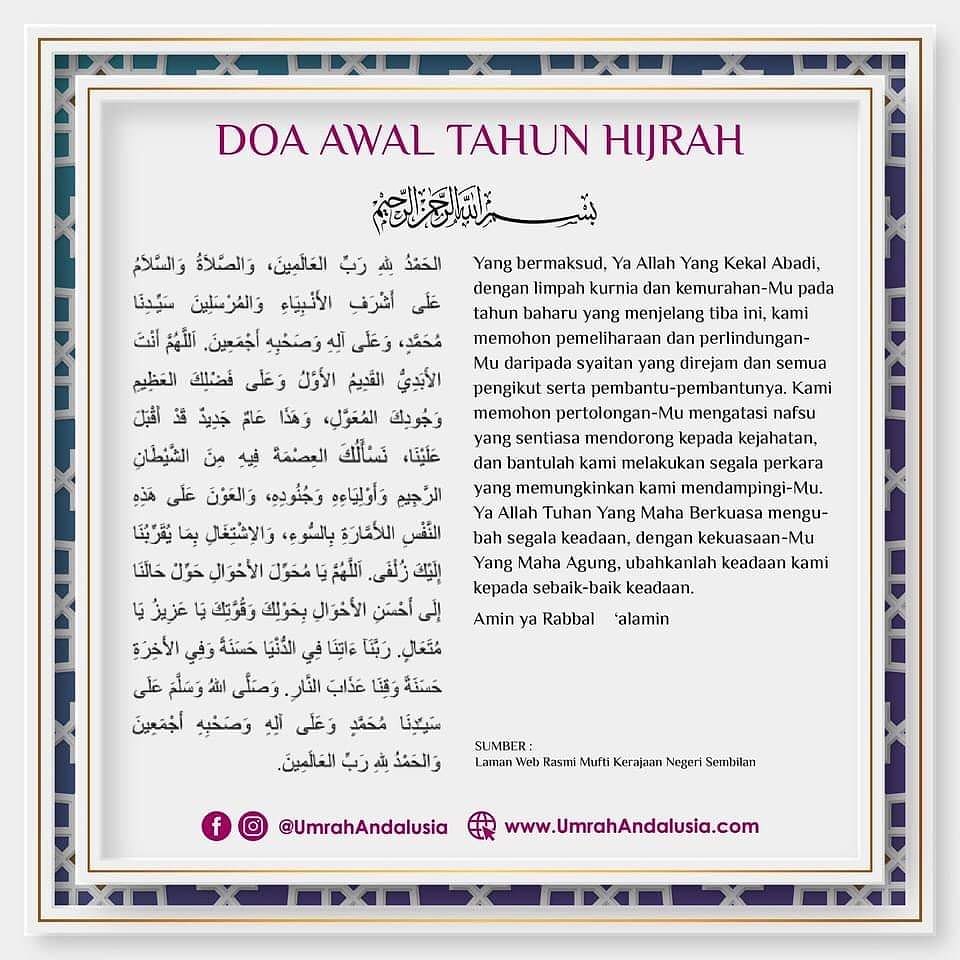 DOA AWAL TAHUN HIJRAH
بسم الله الرحمن الرحيم
الحَمْدُ لِلهِ رَبِّ العَالَمِينَ، وَالصَّلاَةُ وَالسَّلاَمُ
عَلَى أَشْرَفِ الأَنْبِيَاءِ وَالمُرْسَلِينَ سَيِّدِنَا
مُحَمَّدٍ، وَعَلَى آلِهِ وَصَحْبِهِ أَجْمَعِينَ. اَللَّهُمَّ أَنْتَ
الأَبَدِيُّ القَدِيمُ الأَوَّلُ وَعَلَى فَضْلِكَ العَظِيمِ
وَجُودِكَ المُعَوَّلِ، وَهَذَا عَامٌ جَدِيدٌ قَدْ أَقْبَلَ
عَلَيْنَا، نَسْأَلُكَ العِصْمَةَ فِيهِ مِنَ الشَّيْطَانِ
الرَّجِيمِ وَأَوْلِيَاءِهِ وَجُنُودِهِ، وَالعَوْنَ عَلَى هَذِهِ
النَّفْسِ اللأَمَّارَةِ بِالسُّوءِ، وَالاِشْتِغَالِ بِمَا يُقَرِّبُنَا
إِلَيْكَ زُلْفَى. اَللَّهُمَّ يَا مُحَوِّلَ الأَحْوَالِ حَوِّلْ حَالَنَا
إِلَى أَحْسَنِ الأَحْوَالِ بِحَوْلِكَ وَقُوَّتِكَ يَا عَزِيزُ يَا
مُتَعَالِ. رَبَّنَآ ءَاتِنَا فِي الدُّنْيَا حَسَنَةً وَفِي الأَخِرَةِ
حَسَنَةً وَقِنَا عَذَابَ النَّارِ. وَصَلَّى اللهُ وَسَلَّمَ عَلَى
سَيِّدِنَا مُحَمَّدٍ وَعَلَى آلِهِ وَصَحْبِهِ أَجْمَعِينَ
وَالحَمْدُ لِلهِ رَبِّ العَالَمِينَ.
Yang bermaksud, Ya Allah Yang Kekal Abadi,
dengan limpah kurnia dan kemurahan-Mu pada
tahun baharu yang menjelang tiba ini, kami
memohon pemeliharaan dan perlindungan-
Mu daripada syaitan yang direjam dan semua
pengikut serta pembantu-pembantunya. Kami
memohon pertolongan-Mu mengatasi nafsu
yang sentiasa mendorong kepada kejahatan,
dan bantulah kami melakukan segala perkara
yang memungkinkan kami mendampingi-Mu.
Ya Allah Tuhan Yang Maha Berkuasa mengu-
bah segala keadaan, dengan kekuasaan-Mu
Yang Maha Agung, ubahkanlah keadaan kami
kepada sebaik-baik keadaan.
Amin ya Rabbal ‘alamin
SUMBER :
Laman Web Rasmi Mufti Kerajaan Negeri Sembilan
@UmrahAndalusia www.UmrahAndalusia.com